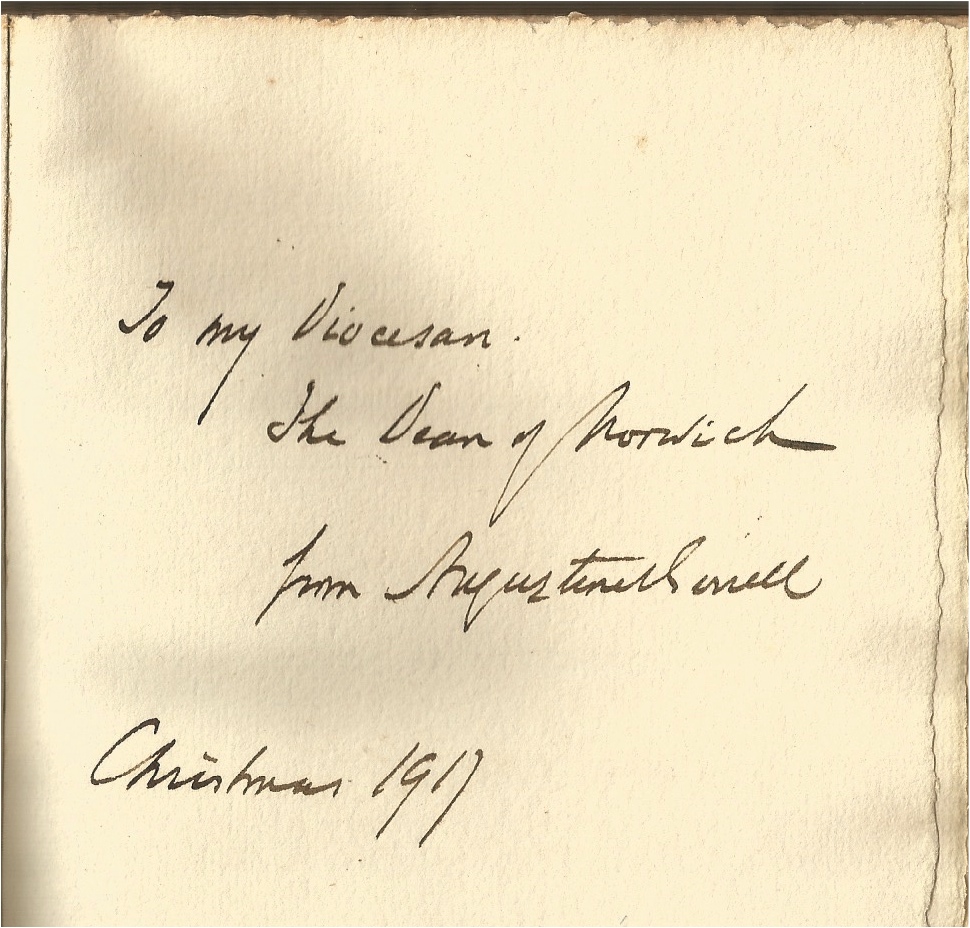 To my Diocesan.
The Dean of Norwich
from Augustine Birrell
Christmas 1917